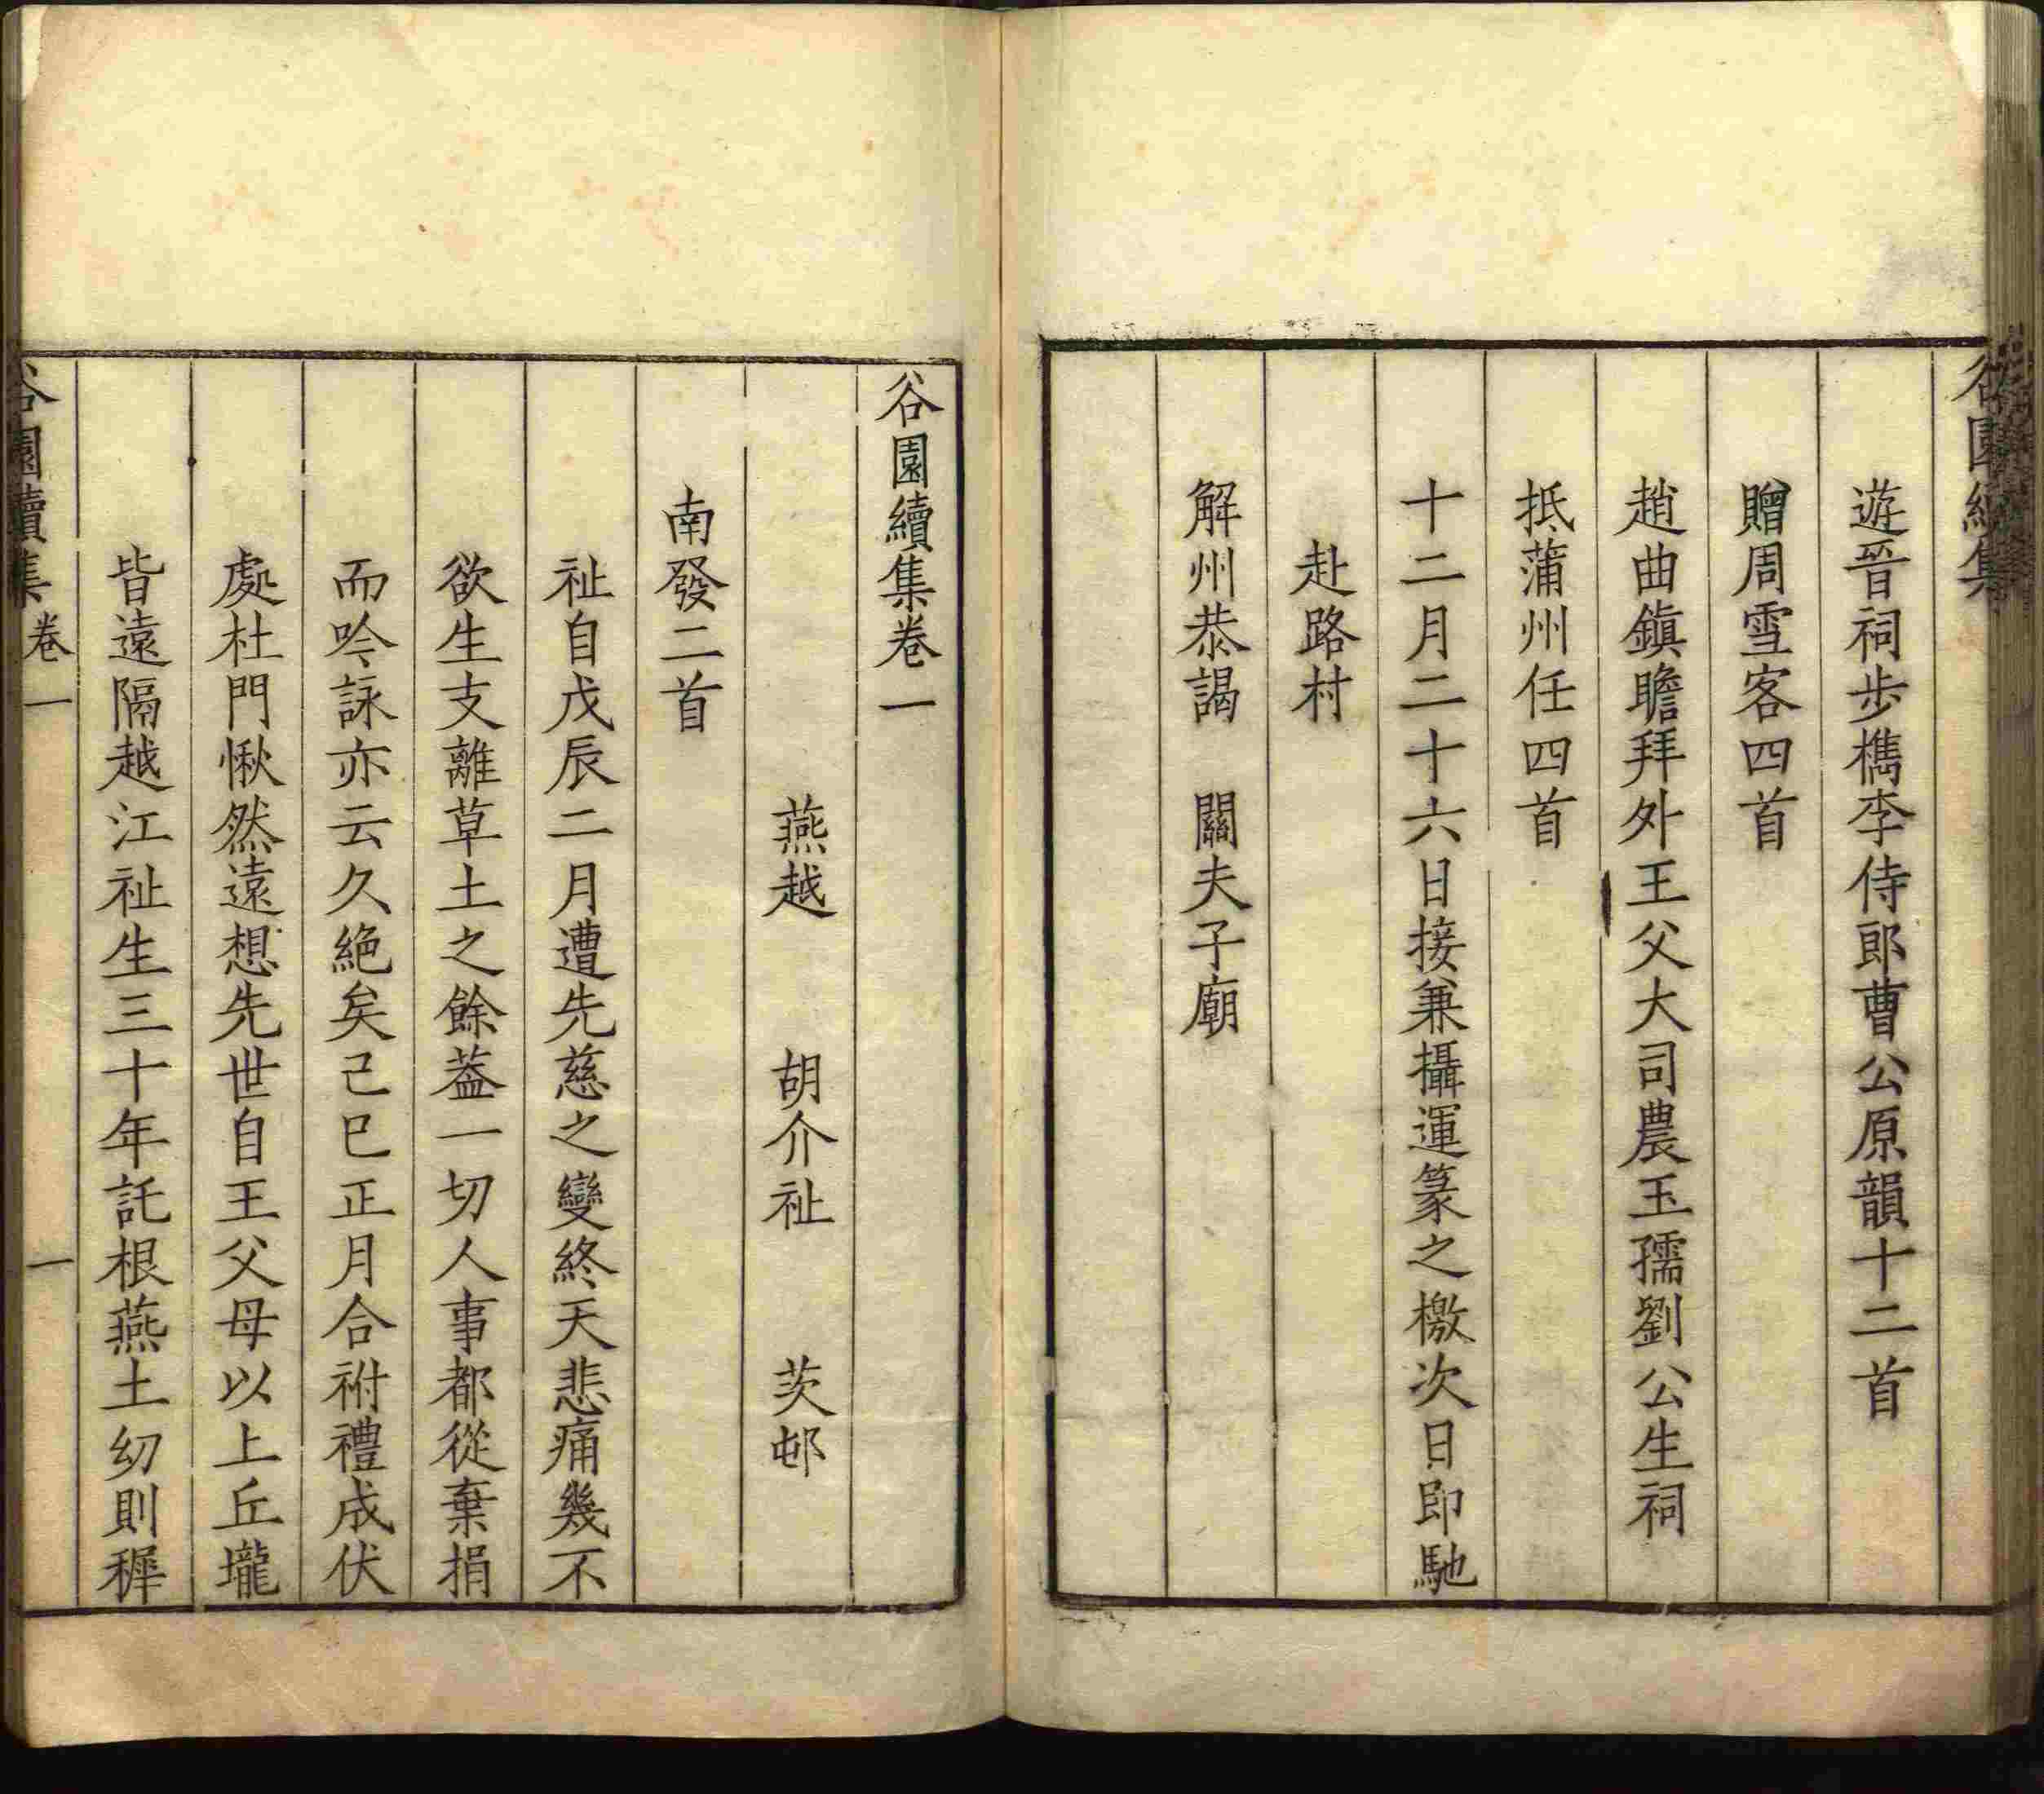 谷園續集
遊晉祠步檇李侍郎曹公原韻十二首
贈周雪客四首
趙曲鎮瞻拜外王父大司農玉孺劉公生祠
抵蒲州任四首
十二月二十六日接兼攝運篆之檄次日即馳
赴路村
解州恭謁　關夫子廟
谷園續集卷一
燕越　胡介祉　茨邨
南發二首
祉自戊辰二月遭先慈之變終天悲痛幾不
欲生支離草土之餘葢一切人事都從棄捐
而吟詠亦云久絕矣己巳正月合祔禮成伏
處杜門愀然遠想先世自王父母以上丘壠
皆遠隔越江祉生三十年託根燕土幼則穉
谷園續集　卷一　一